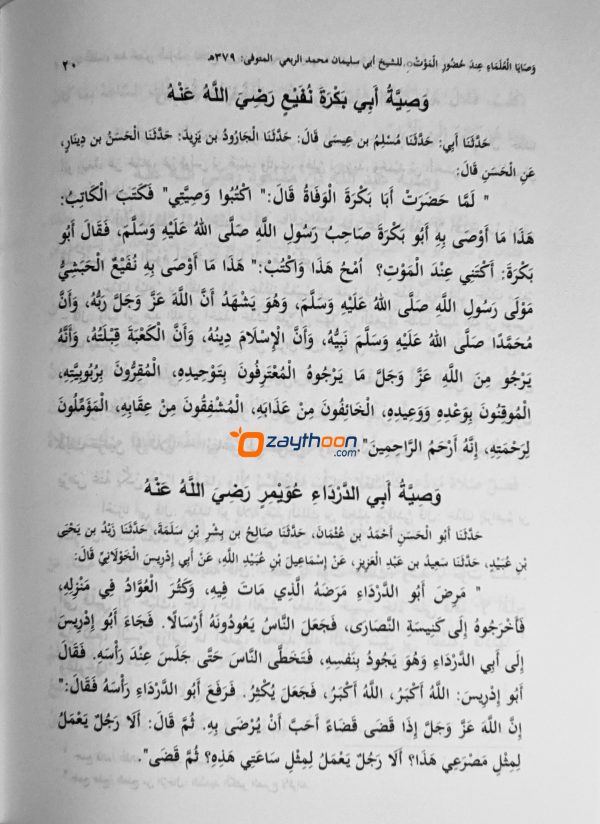 وَصَايَا الْعُلَمَاءِ عِندَ حُضُورِ الْمَوْتِ. للشيخ أبي سليمان محمد الربعي المتوفى: ٣٧٩هـ ٢٠
وَصِيَّةُ أَبِي بَكْرَةَ نُفَيْعٍ رَضِيَ اللَّهُ عَنْهُ
حَدَّثَنَا أَبِي: حَدَّثَنَا مُسْلِمُ بن عِيسَى قَالَ: حَدَّثَنَا الْجَارُودُ بن يَزِيدَ: حَدَّثَنَا الْحَسَنُ بن دِينَارٍ،
عَنِ الْحَسَنِ قَالَ:
" لَمَّا حَضَرَتْ أَبَا بَكْرَةَ الْوَفَاةُ قَالَ:" اكْتُبُوا وَصِيَّتِي" فَكَتَبَ الْكَاتِبُ:
هَذَا مَا أَوْصَى بِهِ أَبو بَكْرَةَ صَاحِبُ رَسُولِ اللَّهِ صَلَّى اللهُ عَلَيْهِ وَسَلَّمَ، فَقَالَ أَبُو
بَكْرَةَ: أَكْتَنِي عِنْدَ الْمَوْتِ؟ امْحُ هَذَا وَاكْتُبْ:" هَذَا مَا أَوْصَى بِهِ نُفَيْعٌ الْحَبَشِيُّ
مَوْلَى رَسُولِ اللَّهِ صَلَّى اللهُ عَلَيْهِ وَسَلَّمَ، وَهُوَ يَشْهَدُ أَنَّ اللَّهَ عَزَّ وَجَلَّ رَبُّهُ، وَأَنَّ
مُحَمَّدًا صَلَّى اللهُ عَلَيْهِ وَسَلَّمَ نَبِيُّهُ، وَأَنَّ الْإِسْلَامَ دِينُهُ، وَأَنَّ الْكَعْبَةَ قِبْلَتُهُ، وَأَنَّهُ
يَرْجُو مِنَ اللَّهِ عَزَّ وَجَلَّ مَا يَرْجُوهُ الْمُعْتَرِفُونَ بِتَوْحِيدِهِ، الْمُقِرُّونَ بِرُبُوبِيَّتِهِ،
الْمُوقِنُونَ بِوَعْدِهِ وَوَعِيدِهِ، الْخَائِفُونَ مِنْ عَذَابِهِ، الْمُشْفِقُونَ مِنْ عِقَابِهِ، الْمُؤَمِّلُونَ
لِرَحْمَتِهِ، إِنَّهُ أَرْحَمُ الرَّاحِمِينَ"
zaythoon.com
وَصِيَّةُ أَبِي الدَّرْدَاءِ عُوَيْمِرٍ رَضِيَ اللَّهُ عَنْهُ
حَدَّثَنَا أَبُو الْحَسَنِ أَحْمَدُ بن عُثْمَانَ، حَدَّثَنَا صَالِحُ بن بِشْرِ بْنِ سَلَمَةَ، حَدَّثَنَا زَيْدُ بن يَحْيَى
بْنِ عُبَيْدٍ، حَدَّثَنَا سَعِيدُ بن عَبْدِ الْعَزِيزِ، عَنْ إِسْمَاعِيلَ بْنِ عُبَيْدِ اللَّهِ، عَنْ أَبِي إِدْرِيسَ الْخَوْلَانِيِّ قَالَ:
" مَرِضَ أَبُو الدَّرْدَاءِ مَرَضَهُ الَّذِي مَاتَ فِيهِ، وَكَثُرَ الْعُوَّادُ فِي مَنْزِلِهِ،
فَأَخْرَجُوهُ إِلَى كَنِيسَةِ النَّصَارَى، فَجَعَلَ النَّاسُ يَعُودُونَهُ أَرْسَالًا. فَجَاءَ أَبُو إِدْرِيسَ
إِلَى أَبِي الدَّرْدَاءِ وَهُوَ يَجُودُ بِنَفْسِهِ، فَتَخَطَّى النَّاسَ حَتَّى جَلَسَ عِنْدَ رَأْسِهِ. فَقَالَ
أَبُو إِدْرِيسَ: اللَّهُ أَكْبَرُ، اللَّهُ أَكْبَرُ، فَجَعَلَ يُكَبِّرُ. فَرَفَعَ أَبُو الدَّرْدَاءِ رَأْسَهُ فَقَالَ:"
إِنَّ اللَّهَ عَزَّ وَجَلَّ إِذَا قَضَى قَضَاءً أَحَبَّ أَنْ يُرْضَى بِهِ. ثُمَّ قَالَ: أَلَا رَجُلٌ يَعْمَلُ
لِمِثْلِ مَصْرَعِي هَذَا؟ أَلَا رَجُلٌ يَعْمَلُ لِمِثْلِ سَاعَتِي هَذِهِ؟ ثُمَّ قَضَى".